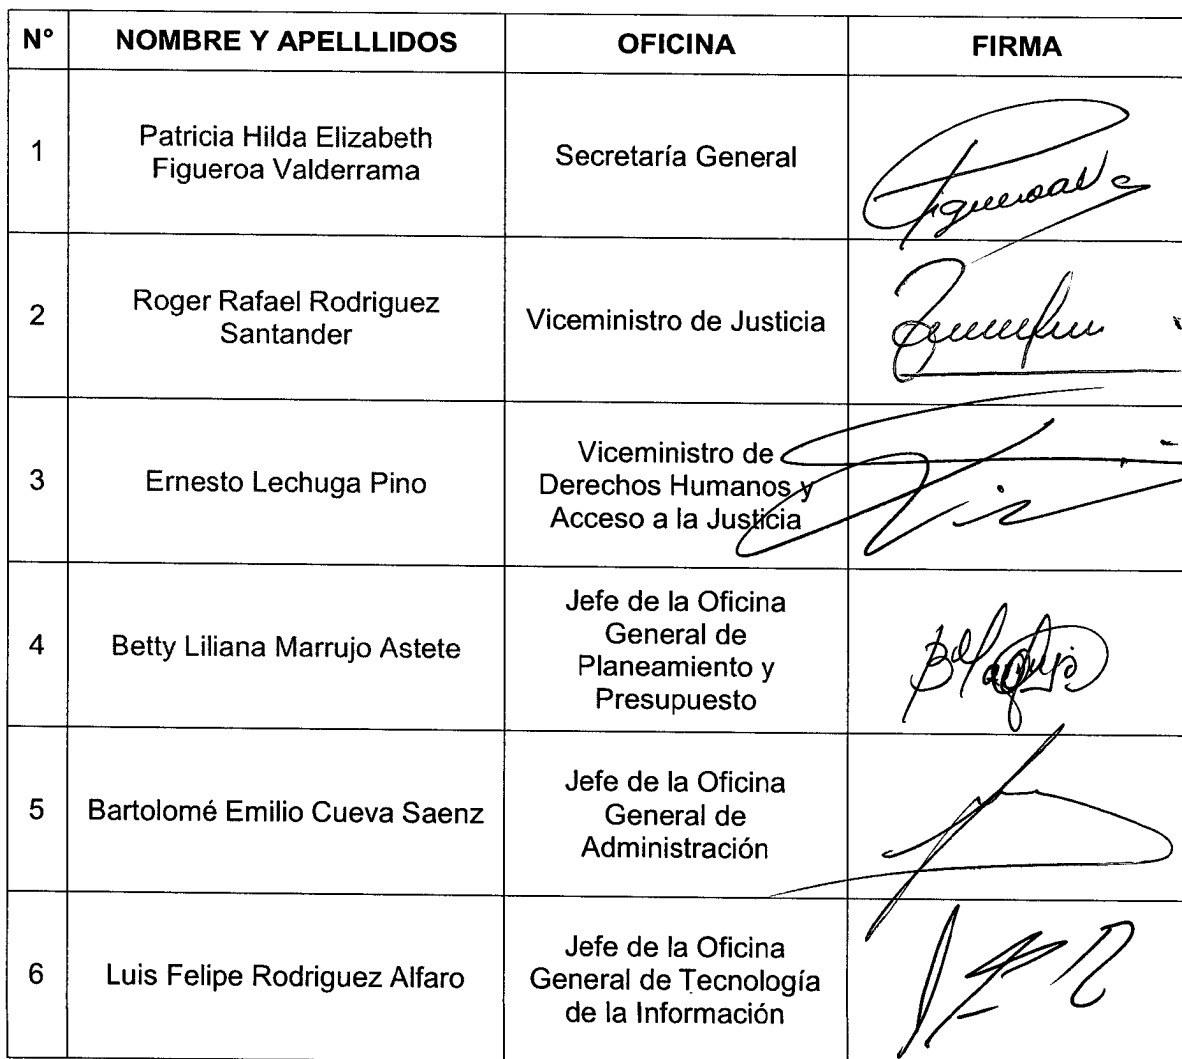 N° NOMBRE Y APELLLIDOS OFICINA FIRMA
1 Patricia Hilda Elizabeth
Figueroa Valderrama
Secretaría General
Figueroav
2 Roger Rafael Rodriguez
Santander
Viceministro de Justicia
3 Ernesto Lechuga Pino
Viceministro de
Derechos Humanos y
Acceso a la Justicia
4 Betty Liliana Marrujo Astete
Jefe de la Oficina
General de
Planeamiento y
Presupuesto
5 Bartolomé Emilio Cueva Saenz
Jefe de la Oficina
General de
Administración
6 Luis Felipe Rodriguez Alfaro
Jefe de la Oficina
General de Tecnología
de la Información